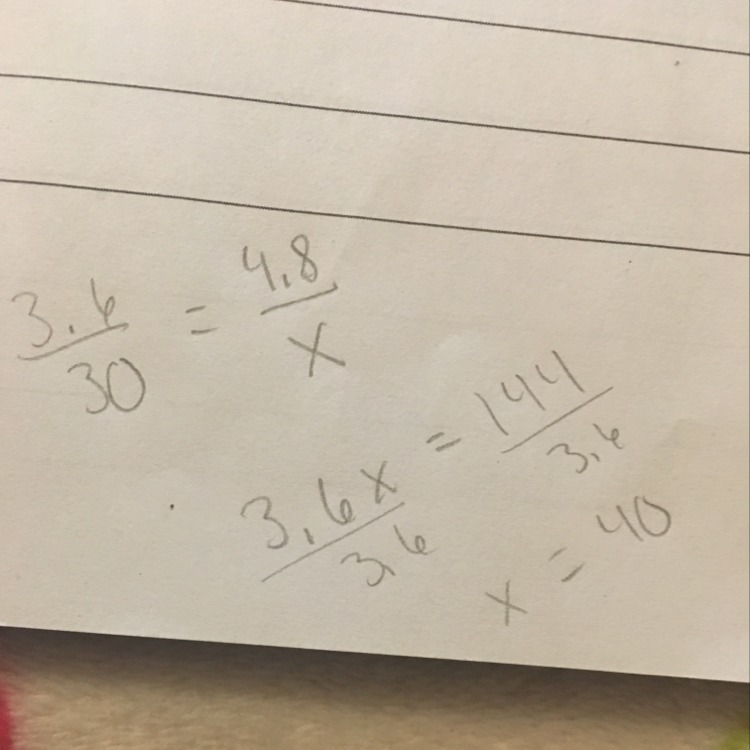 3.6/30 = 4.8/x
3.6x/3.6 = 144/3.6
x = 40